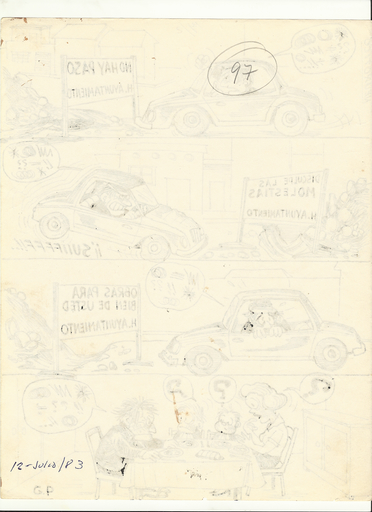 97
NO HAY PASO
H. AYUNTAMIENTO
DISCULPE LAS
MOLESTIAS
H. AYUNTAMIENTO
OBRAS PARA
BIEN DE USTED
H. AYUNTAMIENTO
?
?
?
12-JULIO/83